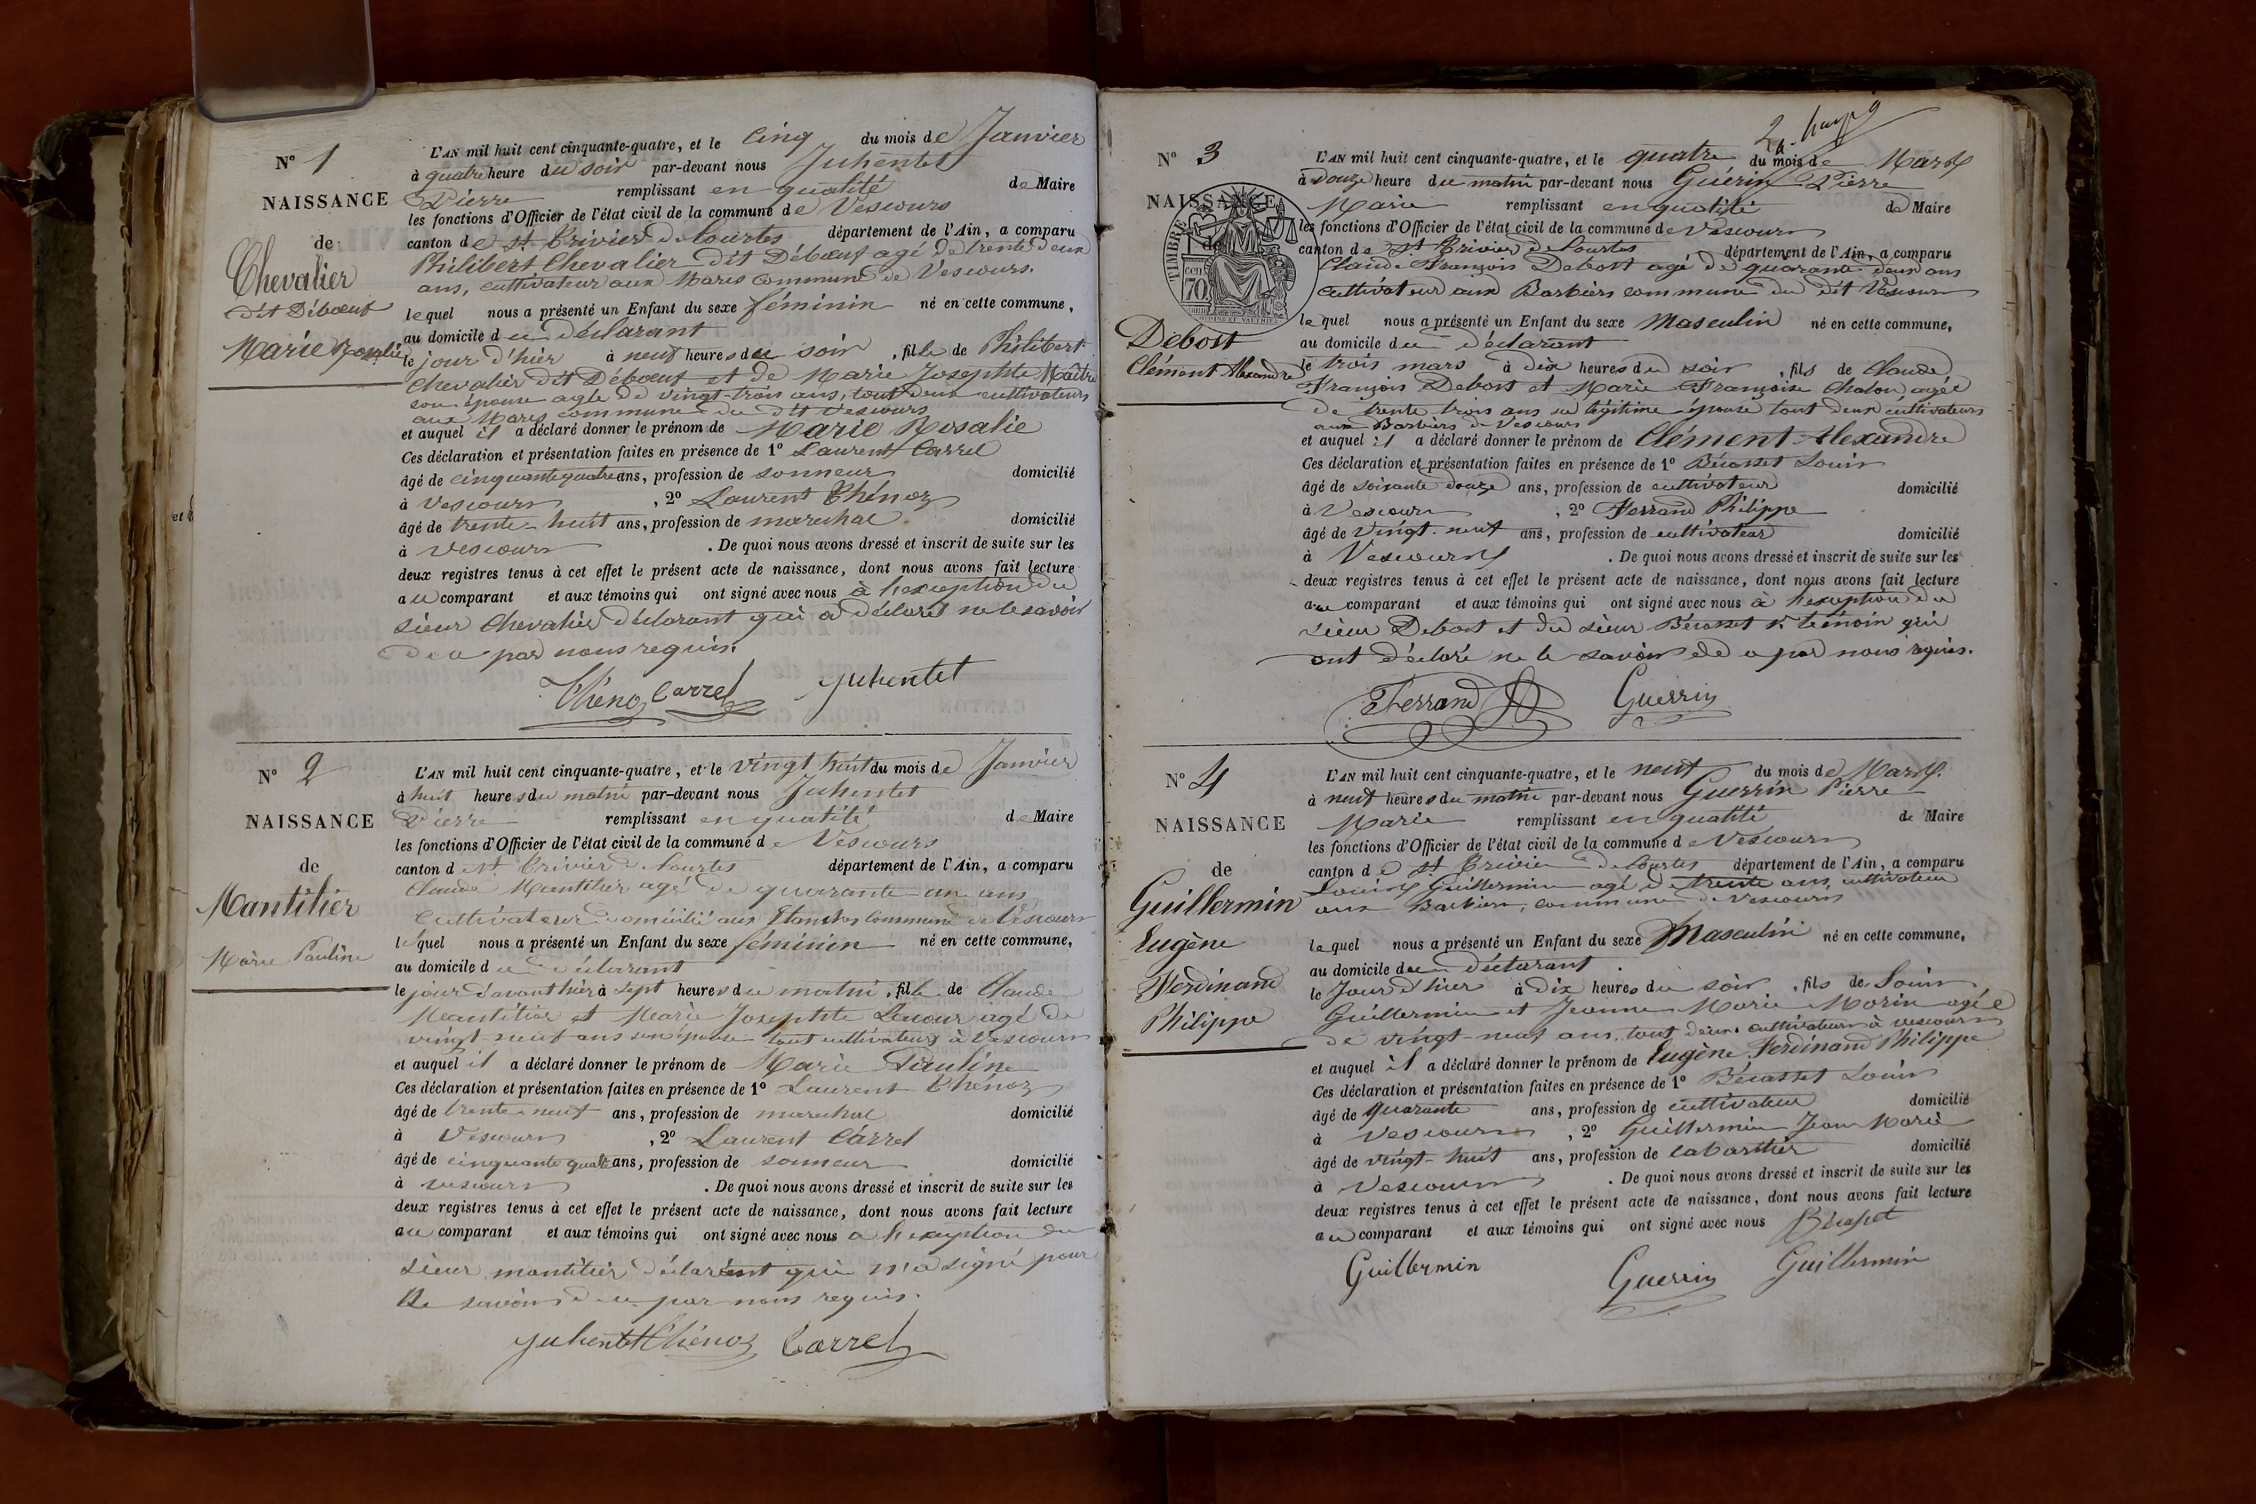 N° 1
NAISSANCE
de
Chevalier
dit Débœuf
Marie Rosalie
L'AN mil huit cent cinquante-quatre, et le cinq du mois de Janvier
à quatre heure du soir par-devant nous Juhentet
Pierre remplissant en qualité de Maire
les fonctions d'Officier de l'état civil de la commune de Vescours
canton de St Trivier de Courtes département de l'Ain, a comparu
Philibert Chevalier dit Débœuf agé de trente deux
ans, cultivateur aux Mares commune de Vescours.
lequel nous a présenté un Enfant du sexe féminin né en cette commune,
au domicile du déclarant
le jour d'hier à neuf heures du soir, fille de Philibert
Chevalier dit Débœuf et de Marie Josephte Maître
son épouse agée de vingt-trois ans, tout deux cultivateurs
aux Mares commune du dit Vescours
et auquel il a déclaré donner le prénom de Marie Rosalie
Ces déclaration et présentation faites en présence de 1° Laurent Carrel
âgé de cinquante quatre ans, profession de sonneur domicilié
à Vescours, 2° Laurent Thénoz
âgé de trente-huit ans, profession de marechal domicilié
à Vescours. De quoi nous avons dressé et inscrit de suite sur les
deux registres tenus à cet effet le présent acte de naissance, dont nous avons fait lecture
au comparant et aux témoins qui ont signé avec nous à l'exception du
sieur Chevalier déclarant qui a déclaré ne le savoir
de ce par nous requis.
Thénoz Carrel Juhentet
N° 2
NAISSANCE
de
Mantilier
Marie Pauline
L'AN mil huit cent cinquante-quatre, et le vingt huit du mois de Janvier
à huit heures du matin par-devant nous Juhentet
Pierre remplissant en qualité de Maire
les fonctions d'Officier de l'état civil de la commune de Vescours
canton de St Trivier de Courtes département de l'Ain, a comparu
Claude Mantilier agé de quarante-un ans,
Cultivateur domicilié aux Etanches Commune de Vescours
lequel nous a présenté un Enfant du sexe féminin né en cette commune,
au domicile du déclarant
le jour d'avant hier à sept heures du matin, fille de Claude
Mantilier et Marie Josephte agé de
vingt-neuf ans son épouse tout cultivateurs à Vescours
et auquel il a déclaré donner le prénom de Marie Pauline
Ces déclaration et présentation faites en présence de 1° Laurent Thénoz
âgé de trente-neuf ans, profession de marechal domicilié
à Vescours, 2° Laurent Carrel
âgé de cinquante quatre ans, profession de sonneur domicilié
à vescours. De quoi nous avons dressé et inscrit de suite sur les
deux registres tenus à cet effet le présent acte de naissance, dont nous avons fait lecture
au comparant et aux témoins qui ont signé avec nous à l'exception du
sieur mantilier déclarant qui n'a signé pour
ne savoir de ce par nous requis.
Juhentet Thénoz Carrel
N° 3
NAISSANCE
de
TIMBRE
70
Debost
Clément Alexandre
L'AN mil huit cent cinquante-quatre, et le quatre du mois de Mars
à douze heure du matin par-devant nous Guérin Pierre
Marie remplissant en qualité de Maire
les fonctions d'Officier de l'état civil de la commune de Vescours
canton de St Trivier de Courtes département de l'Ain, a comparu
Claude François Debost agé de quarante deux ans
cultivateur aux Barbiers commune du dit Vescours
lequel nous a présenté un Enfant du sexe Masculin né en cette commune,
au domicile du déclarant
le trois mars à dix heures du soir, fils de Claude
François Debost et Marie Françoise Chalon agée
de trente trois ans sa légitime épouse tout deux cultivateurs
aux Barbiers de Vescours
et auquel il a déclaré donner le prénom de Clément Alexandre
Ces déclaration et présentation faites en présence de 1° Bécasset Louis
âgé de soixante douze ans, profession de cultivateur domicilié
à Vescours, 2° Ferrand Philippe
âgé de vingt-neuf ans, profession de cultivateur domicilié
à Vescours. De quoi nous avons dressé et inscrit de suite sur les
deux registres tenus à cet effet le présent acte de naissance, dont nous avons fait lecture
au comparant et aux témoins qui ont signé avec nous à l'exception du
sieur Debost et du sieur Bécasset 1r témoin qui
ont déclaré ne le savoir de ce par nous requis.
Ferrand Guerrin
N° 4
NAISSANCE
de
Guillermin
Eugène
Ferdinand
Philippe
L'AN mil huit cent cinquante-quatre, et le neuf du mois de Mars.
à neuf heures du matin par-devant nous Guerrin Pierre
Marie remplissant en qualité de Maire
les fonctions d'Officier de l'état civil de la commune de Vescours
canton de St Trivier de Courtes département de l'Ain, a comparu
Louis Guillermin agé de trente ans, cultivateur
aux Barbiers, commune de Vescours
lequel nous a présenté un Enfant du sexe Masculin né en cette commune,
au domicile du déclarant
le Jour d'hier à dix heures du soir, fils de Louis
Guillermin et Jeanne Marie Morin agée
de vingt-neuf ans, tout deux cultivateurs à vescours
et auquel il a déclaré donner le prénom de Eugène Ferdinand Philippe
Ces déclaration et présentation faites en présence de 1° Bécasset Louis
âgé de quarante ans, profession de cultivateur domicilié
à Vescours, 2° Guillermin Jean Marie
âgé de vingt-huit ans, profession de cabartier domicilié
à Vescours. De quoi nous avons dressé et inscrit de suite sur les
deux registres tenus à cet effet le présent acte de naissance, dont nous avons fait lecture
au comparant et aux témoins qui ont signé avec nous Bécasset
Guillermin Guerrin Guillermin